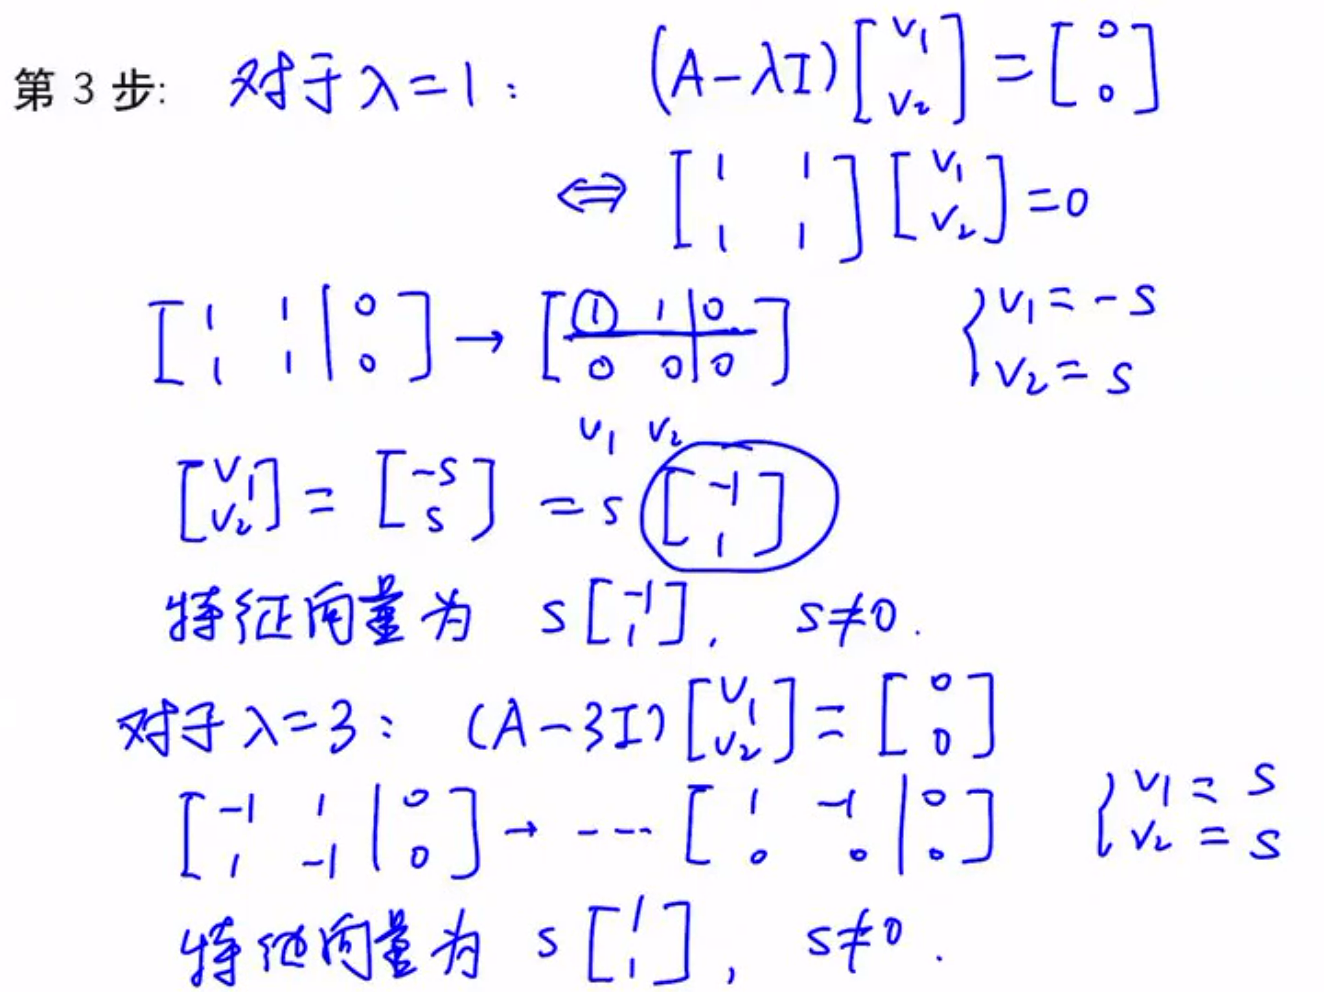 第 3 步: 对于 λ=1: (A-λI)[v₁; v₂] = [0; 0]
⇔ [1 1; 1 1][v₁; v₂] = 0
[1 1 | 0; 1 1 | 0] → [1 1 | 0; 0 0 | 0] { v₁ = -s; v₂ = s
v₁ v₂
[v₁; v₂] = [-s; s] = s[-1; 1]
特征向量为 s[-1; 1], s≠0.
对于 λ=3: (A-3I)[v₁; v₂] = [0; 0]
[-1 1 | 0; 1 -1 | 0] → --- [1 -1 | 0; 0 0 | 0] { v₁ = s; v₂ = s
特征向量为 s[1; 1], s≠0.